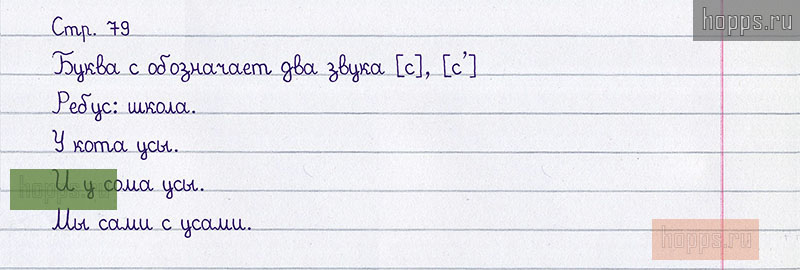 hopps.ru
Стр. 79
Буква с обозначает два звука [с], [с’]
Ребус: школа.
У кота усы.
И у сома усы.
hopps.ru
Мы сами с усами.
hopps.ru